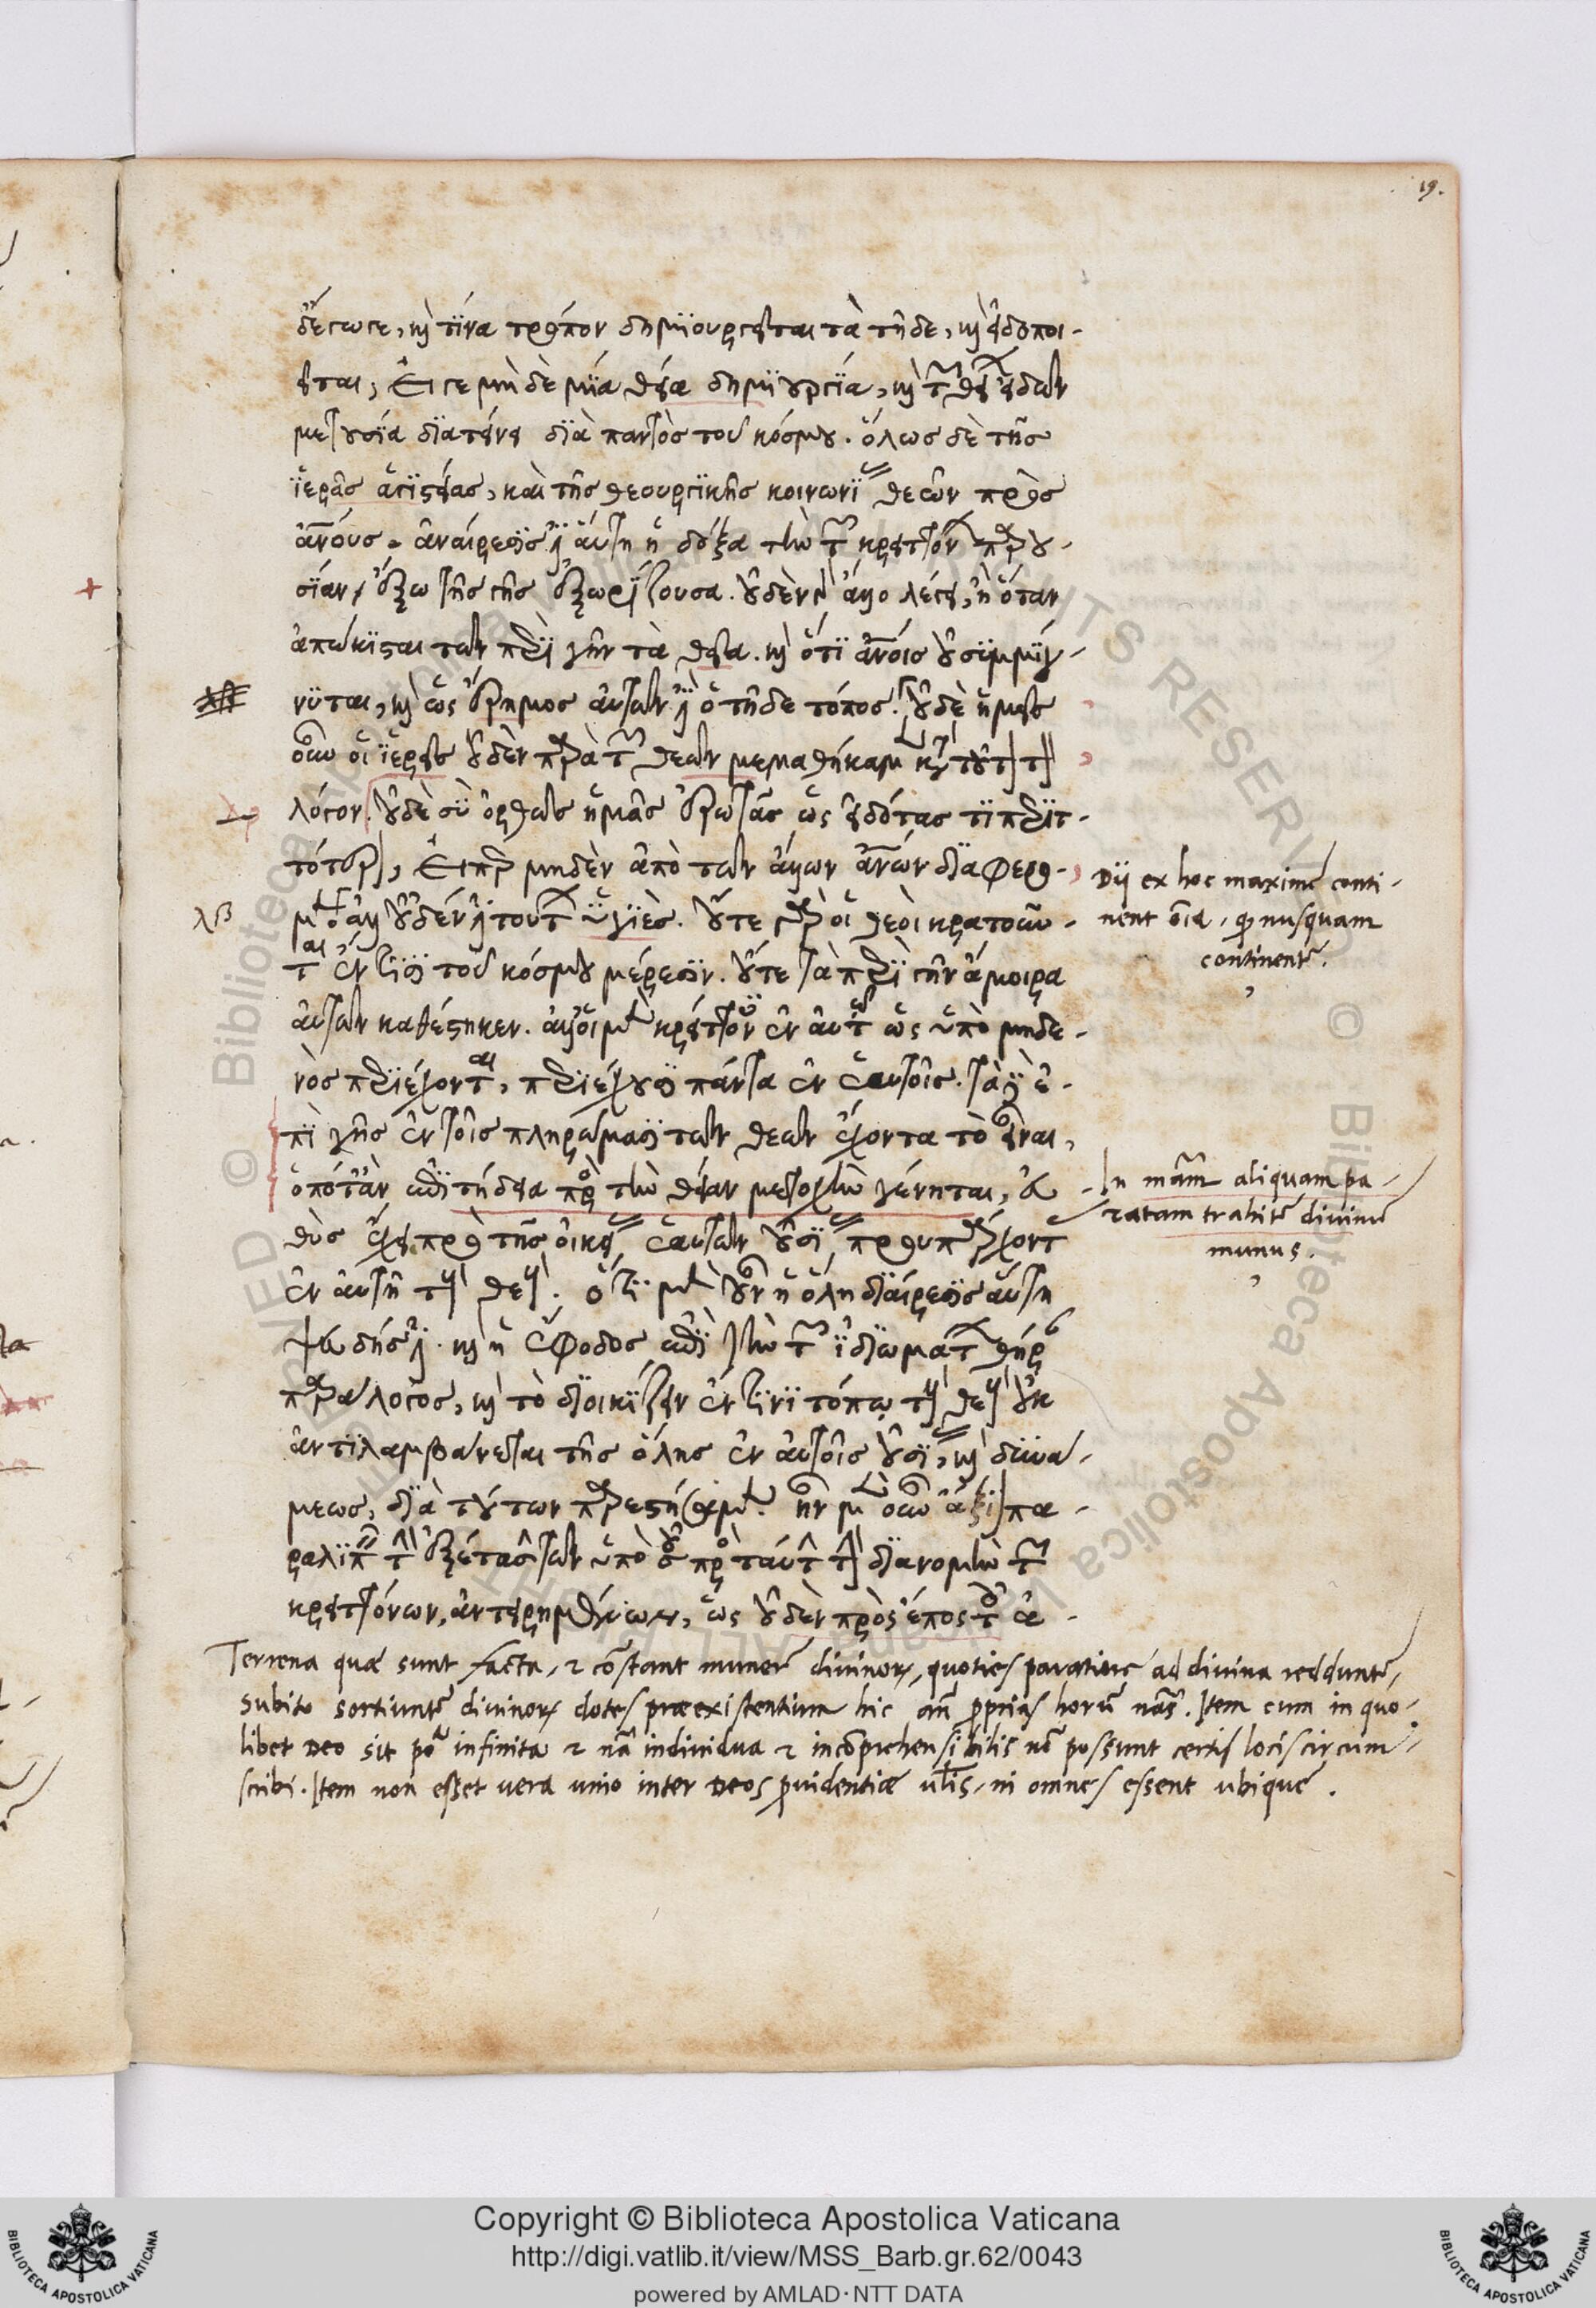 19.
δ' ἔγωγε, καὶ τίνα τρόπον δημιουργεῖται τὰ τῆδε, καὶ εἰδοποι-
εῖται, Εἴ γε μηδὲ μία θεία δημιουργία, καὶ τῶν θείων εἰδῶν
μετουσία διατείνει διὰ παντὸς τοῦ κόσμου. ὅλως δὲ τῆς
ἱερᾶς ἁγιστείας, καὶ τῆς θεουργικῆς κοινωνίας θεῶν πρὸς
ἀνους. ἀναίρεσίς ἐστιν αὕτη ἡ δόξα τὴν τῶν κρειττόνων παρου-
σίαν, ἔξω τῆς γῆς ἐξωρίζουσα. οὐδὲν γὰρ ἄλλο λέγει, ἢ ὅταν
ἀπώκισται τῶν περὶ γῆν τὰ θεῖα. καὶ ὅτι ἀνοις οὐ συμμίγ-
νυται, καὶ ὡς ἔρημος αὐτῶν ἐστιν ὁ τῆδε τόπος. οὐδὲ ἡμεῖς
οὖν οἱ ἱερεῖς οὐδὲν παρὰ τῶν θεῶν μεμαθήκαμεν κατὰ τοῦτον τὸν
λόγον. οὐδὲ σὺ ὀρθῶς ἡμᾶς ἐρωτᾶς ὡς εἰδότας τι περιτ-
τότερον, Εἴπερ μηδὲν ἀπὸ τῶν ἄλλων ἀνων διαφερό-
λβ μεθα. ἀλλ' οὐδέν ἐστι τούτων ὑγιές. οὔτε γὰρ οἱ θεοὶ κρατοῦν-
ται ἐν τισι τοῦ κόσμου μέρεσιν. οὔτε τὰ περὶ γῆν ἄμοιρα
αὐτῶν καθέστηκεν. ἀλλ' οἱ μὲν κρείττονες ἐν αὐτῷ ὡς ὑπὸ μηδε-
νὸς περιέχονται, περιέχουσι πάντα ἐν ἑαυτοῖς. τὰ δ' ἐ-
πὶ γῆς ἐν τοῖς πληρώμασι τῶν θεῶν ἔχοντα τὸ εἶναι,
ὁπόταν ἐπιτήδεια πρὸς τὴν θείαν μετοχὴν γένηται, εὐ-
θὺς ἔχει πρὸ τῆς οἰκείας ἑαυτῶν οὐσίας προυπάρχοντας
ἐν αὐτῆ τοὺς θεούς. ὅτι μὲν οὖν ἡ ὅλη διαίρεσις αὕτη
ψευδής ἐστιν. καὶ ἡ ἔφοδος ἐπὶ τὴν τῶν ἰδιωμάτων θήραν
παράλογος, καὶ τὸ διοικίζειν ἐν τινι τόπῳ τοὺς θεοὺς οὐκ
ἀντιλαμβάνεται τῆς ὅλης ἐν αὐτοῖς οὐσίας, καὶ δυνά-
μεως, διὰ τούτων παρεστησάμεθα. ἦν μὲν οὖν ἄξιον πα-
ραλιπεῖν τὴν ἐξέτασιν τῶν ὑπὸ σοῦ πρὸς ταύτην τὴν διανομὴν τῶν
κρειττόνων, ἀντειρημένων, ὡς οὐδὲν πρὸς ἔπος τοῦ ἀ-
Dij ex hoc maxime conti-
nent oia, qp nusquam
continentr.
In mam aliquam pa-
ratam trahitr divinu
munus.
Terrena quae sunt facta, & costant munere divinor, quoties paratiora ad divina reddunt,
subito sortiuntr divinor dotes praeexistentium hic an pprias horu nas. Item cum in quo-
libet Deo sit poa infinita & na individua & incoprehensibilis no possunt certis locis circum-
scribi. Item non esset vera unio inter Deos pvidentiae ulis, ni omnes essent ubique.
© Biblioteca Apostolica Vaticana
Copyright © Biblioteca Apostolica Vaticana
http://digi.vatlib.it/view/MSS_Barb.gr.62/0043
powered by AMLAD · NTT DATA
BIBLIOTECA APOSTOLICA VATICANA
BIBLIOTECA APOSTOLICA VATICANA